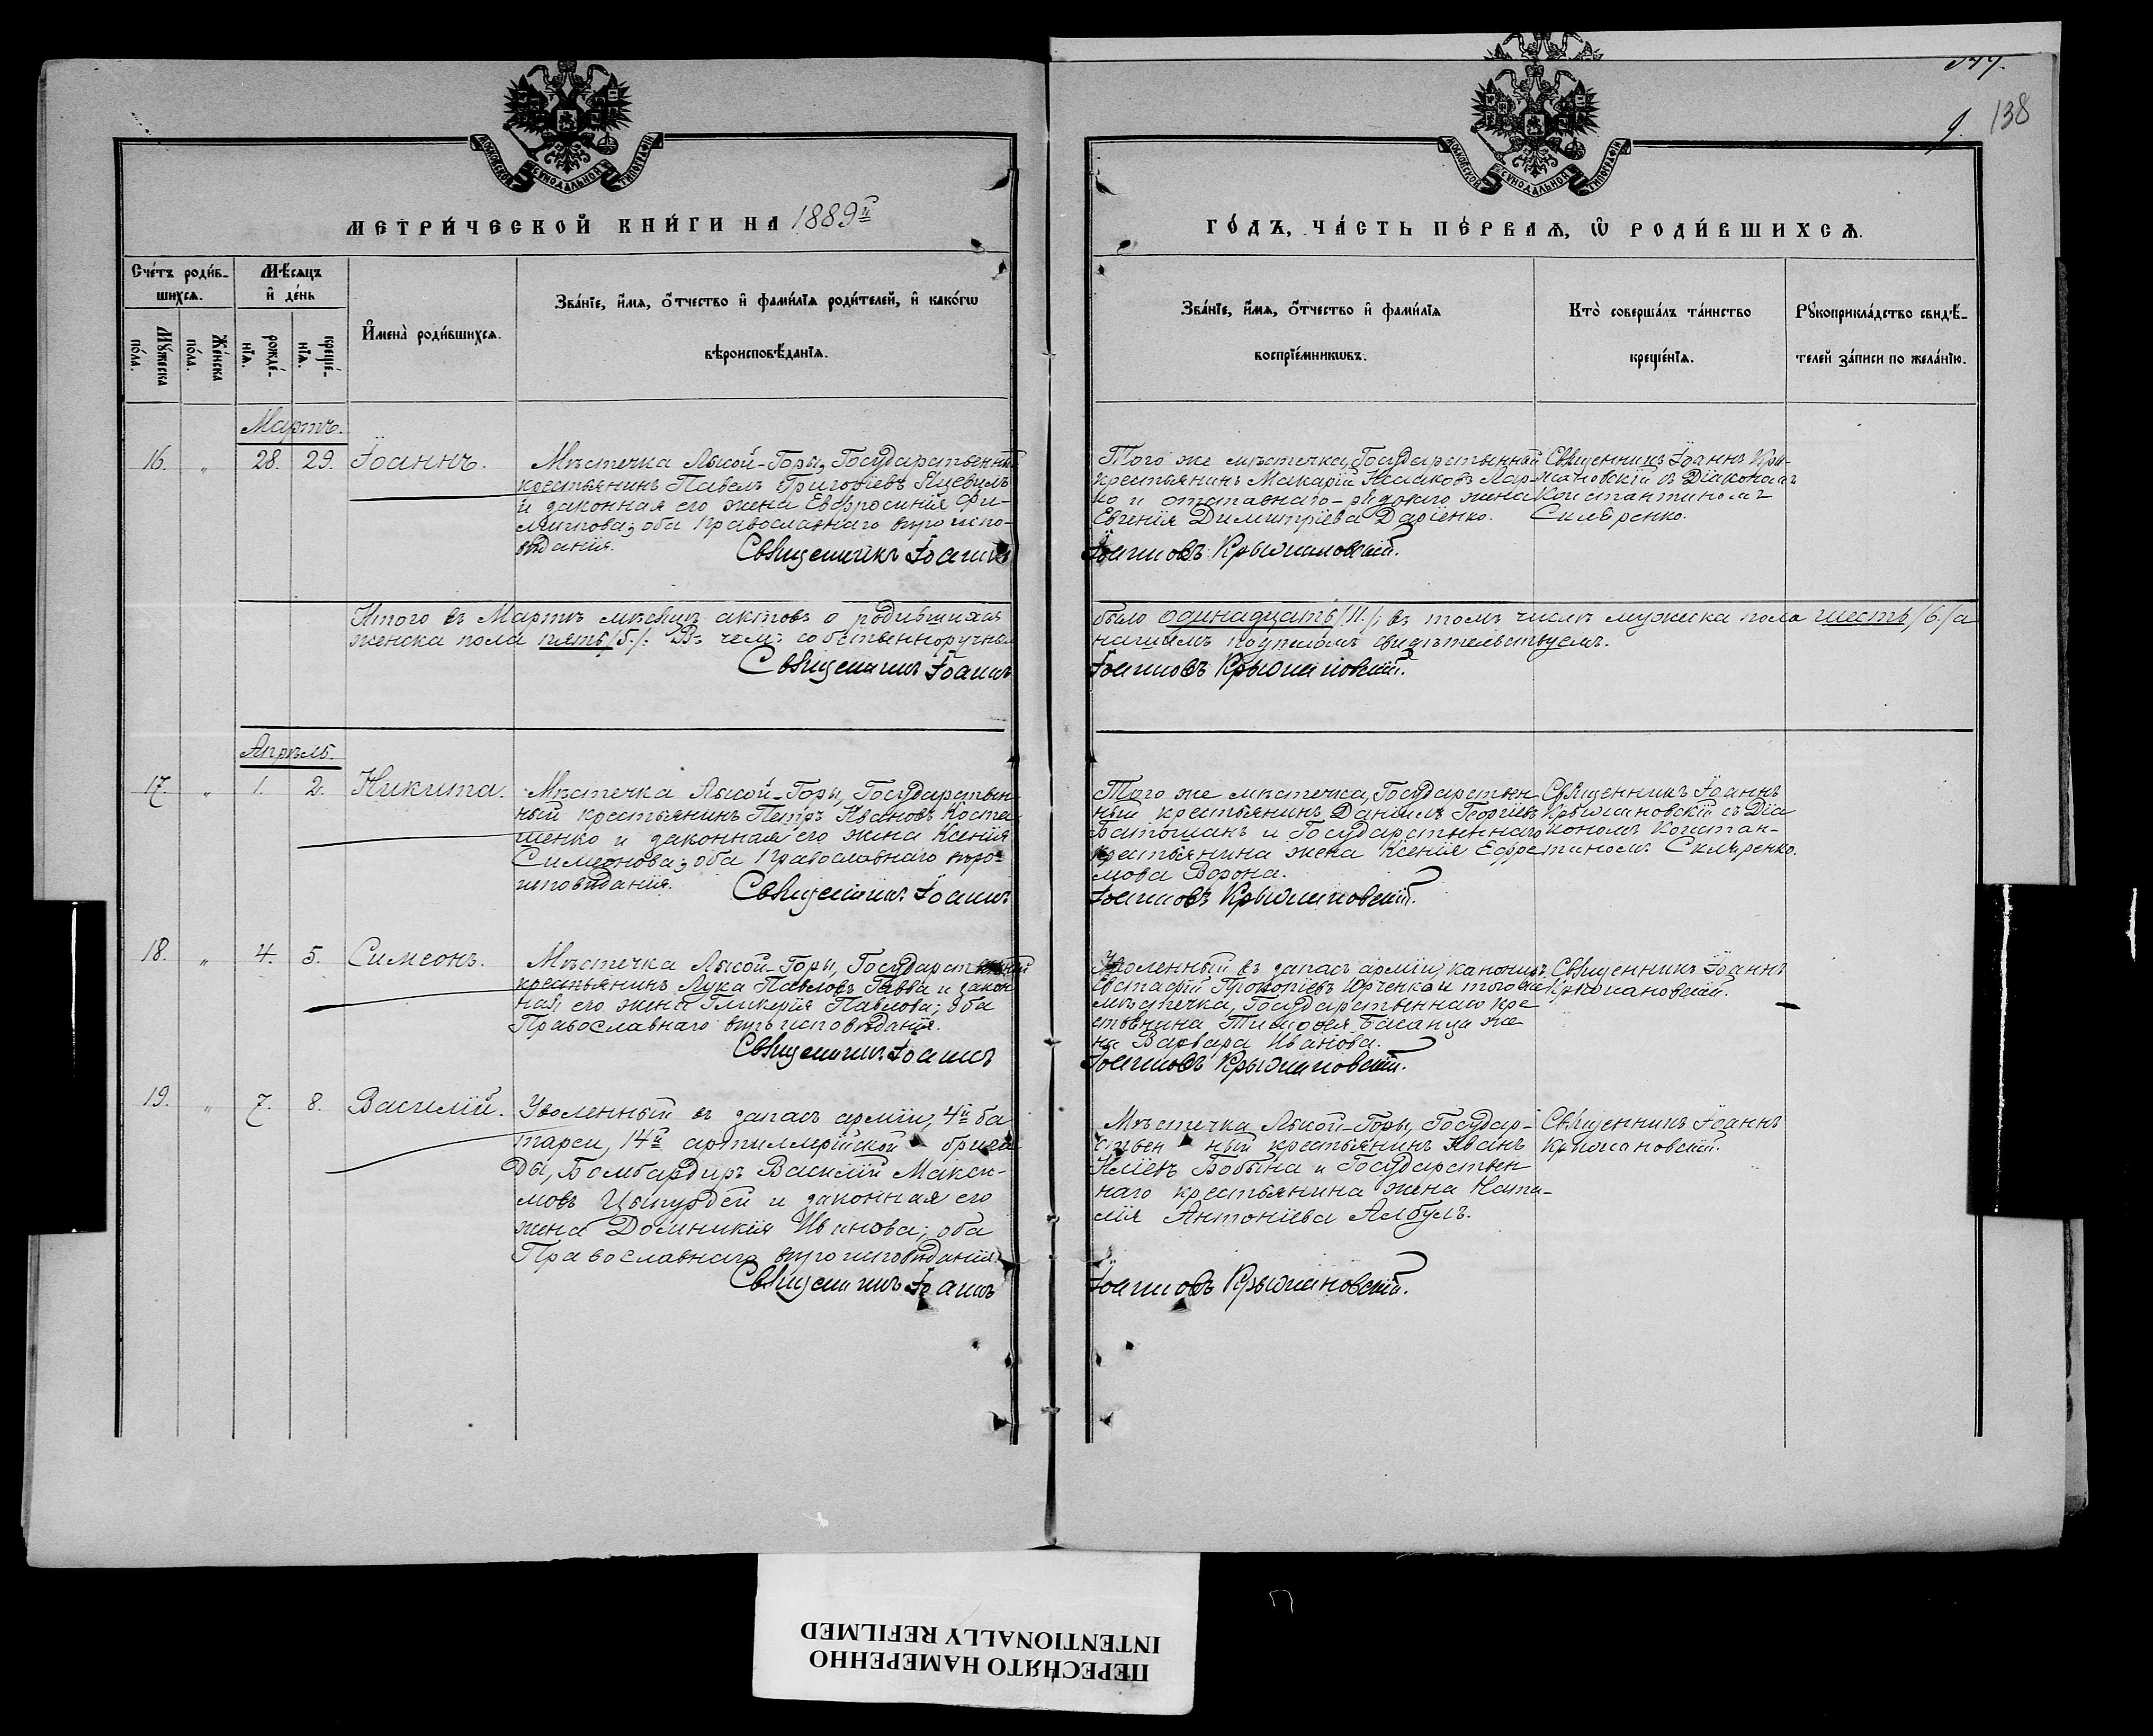 344.
9. 138
МОСКОВСКОЙ СѴНОДАЛЬНОЙ ТИПОГРАФІИ
МОСКОВСКОЙ СѴНОДАЛЬНОЙ ТИПОГРАФІИ
МЕТРИ́ЧЕСКОЙ КНИ́ГИ НА 1889й
Сче́тъ роди́в-
шихсѧ.
Мѣ́сѧцъ
и҆ де́нь
Мꙋ́жеска
по́ла.
Же́нска
по́ла.
рожде́-
нїѧ.
креще́-
нїѧ.
И҆мена̀ роди́вшихсѧ.
Зва́нїе, и҆́мѧ, ѻ҆́тчество и҆ фами́лїѧ роди́телей, и҆ како́гѡ
вѣроисповѣ́данїѧ.
Мартъ.
16. " 28. 29. Іоаннъ.
Мѣстечка Лысой-Горы, Государственный
крестьянинъ Павелъ Григоріевъ Яцевилъ
и законная его жена Евфросинія Фи-
липпова; оба Православнаго вѣроиспо-
вѣданія.
Священникъ Іоаннъ
Итого въ Мартѣ мѣсяцѣ актовъ о родившихся
женска пола пять /5/. Въ чемъ собственноручнымъ
Священникъ Іоаннъ
Апрѣль.
17. " 1. 2. Никита.
Мѣстечка Лысой-Горы, Государствен
ный крестьянинъ Петръ Ивановъ Коста
шенко и законная его жена Ксенія
Симеонова; оба Православнаго вѣро-
исповѣданія.
Священникъ Іоаннъ
18. " 4. 5. Симеонъ.
Мѣстечка Лысой-Горы, Государственный
крестьянинъ Лука Павловъ Гавва и закон
ная его жена Гликерія Павлова; оба
Православнаго вѣроисповѣданія.
Священникъ Іоаннъ
19. " 7. 8. Василій.
Уволенный въ запасъ арміи, 4й ба
тареи, 14й артиллерійской брига
ды, Бомбардиръ Василій Макси-
мовъ Цыпурдей и законная его
жена Домникія Иванова; оба
Православнаго вѣроисповѣданія.
Священникъ Іоаннъ
ГО́ДЪ, ЧА́СТЬ ПЕ́РВАѦ, Ѡ҆ РОДИ́ВШИХСѦ.
Зва́нїе, и҆́мѧ, ѻ҆́тчество и҆ фами́лїѧ
воспрїе́мникѡвъ.
Кто̀ соверша́лъ та́инство
креще́нїѧ.
Рꙋкоприкла́дство свидѣ́-
телей за́писи по жела́нїю.
Того же мѣстечка, Государственный
крестьянинъ Макарій Исааковъ Лар-
ко и отставнаго-рядоваго жена
Евгенія Димитріева Даріенко.
Священникъ Іоаннъ Кры-
жановскій съ Діакономъ
Константиномъ
Скляренко.
Іоанновъ Крыжановскій.
было одинадцать /11./; въ томъ числѣ мужеска пола шесть /6./ а
нашимъ подписомъ свидѣтельствуемъ.
Іоанновъ Крыжановскій.
Того же мѣстечка, Государствен
ный крестьянинъ Даніилъ Георгіевъ
Батошанъ и Государственнаго
крестьянина жена Ксенія Ефре
мова Ворона.
Священникъ Іоаннъ
Крыжановскій съ Діа
кономъ Констан-
тиномъ Скляренко.
Іоанновъ Крыжановскій.
Уволенный въ запасъ арміи, канониръ
Евстафій Прокопіевъ Юрченко и того же
мѣстечка, Государственнаго кре
стьянина Тимофея Басанца же
на Варвара Иванова.
Священникъ Іоаннъ
Крыжановскій.
Іоанновъ Крыжановскій.
Мѣстечка Лысой-Горы, Государ-
ствен ный крестьянинъ Иванъ
Иліевъ Бобына и Государствен
наго крестьянина жена Ната-
лія Антоніева Албулъ.
Священникъ Іоаннъ
Крыжановскій.
Іоанновъ Крыжановскій.
ПЕРЕСНЯТО НАМЕРЕННО
INTENTIONALLY REFILMED